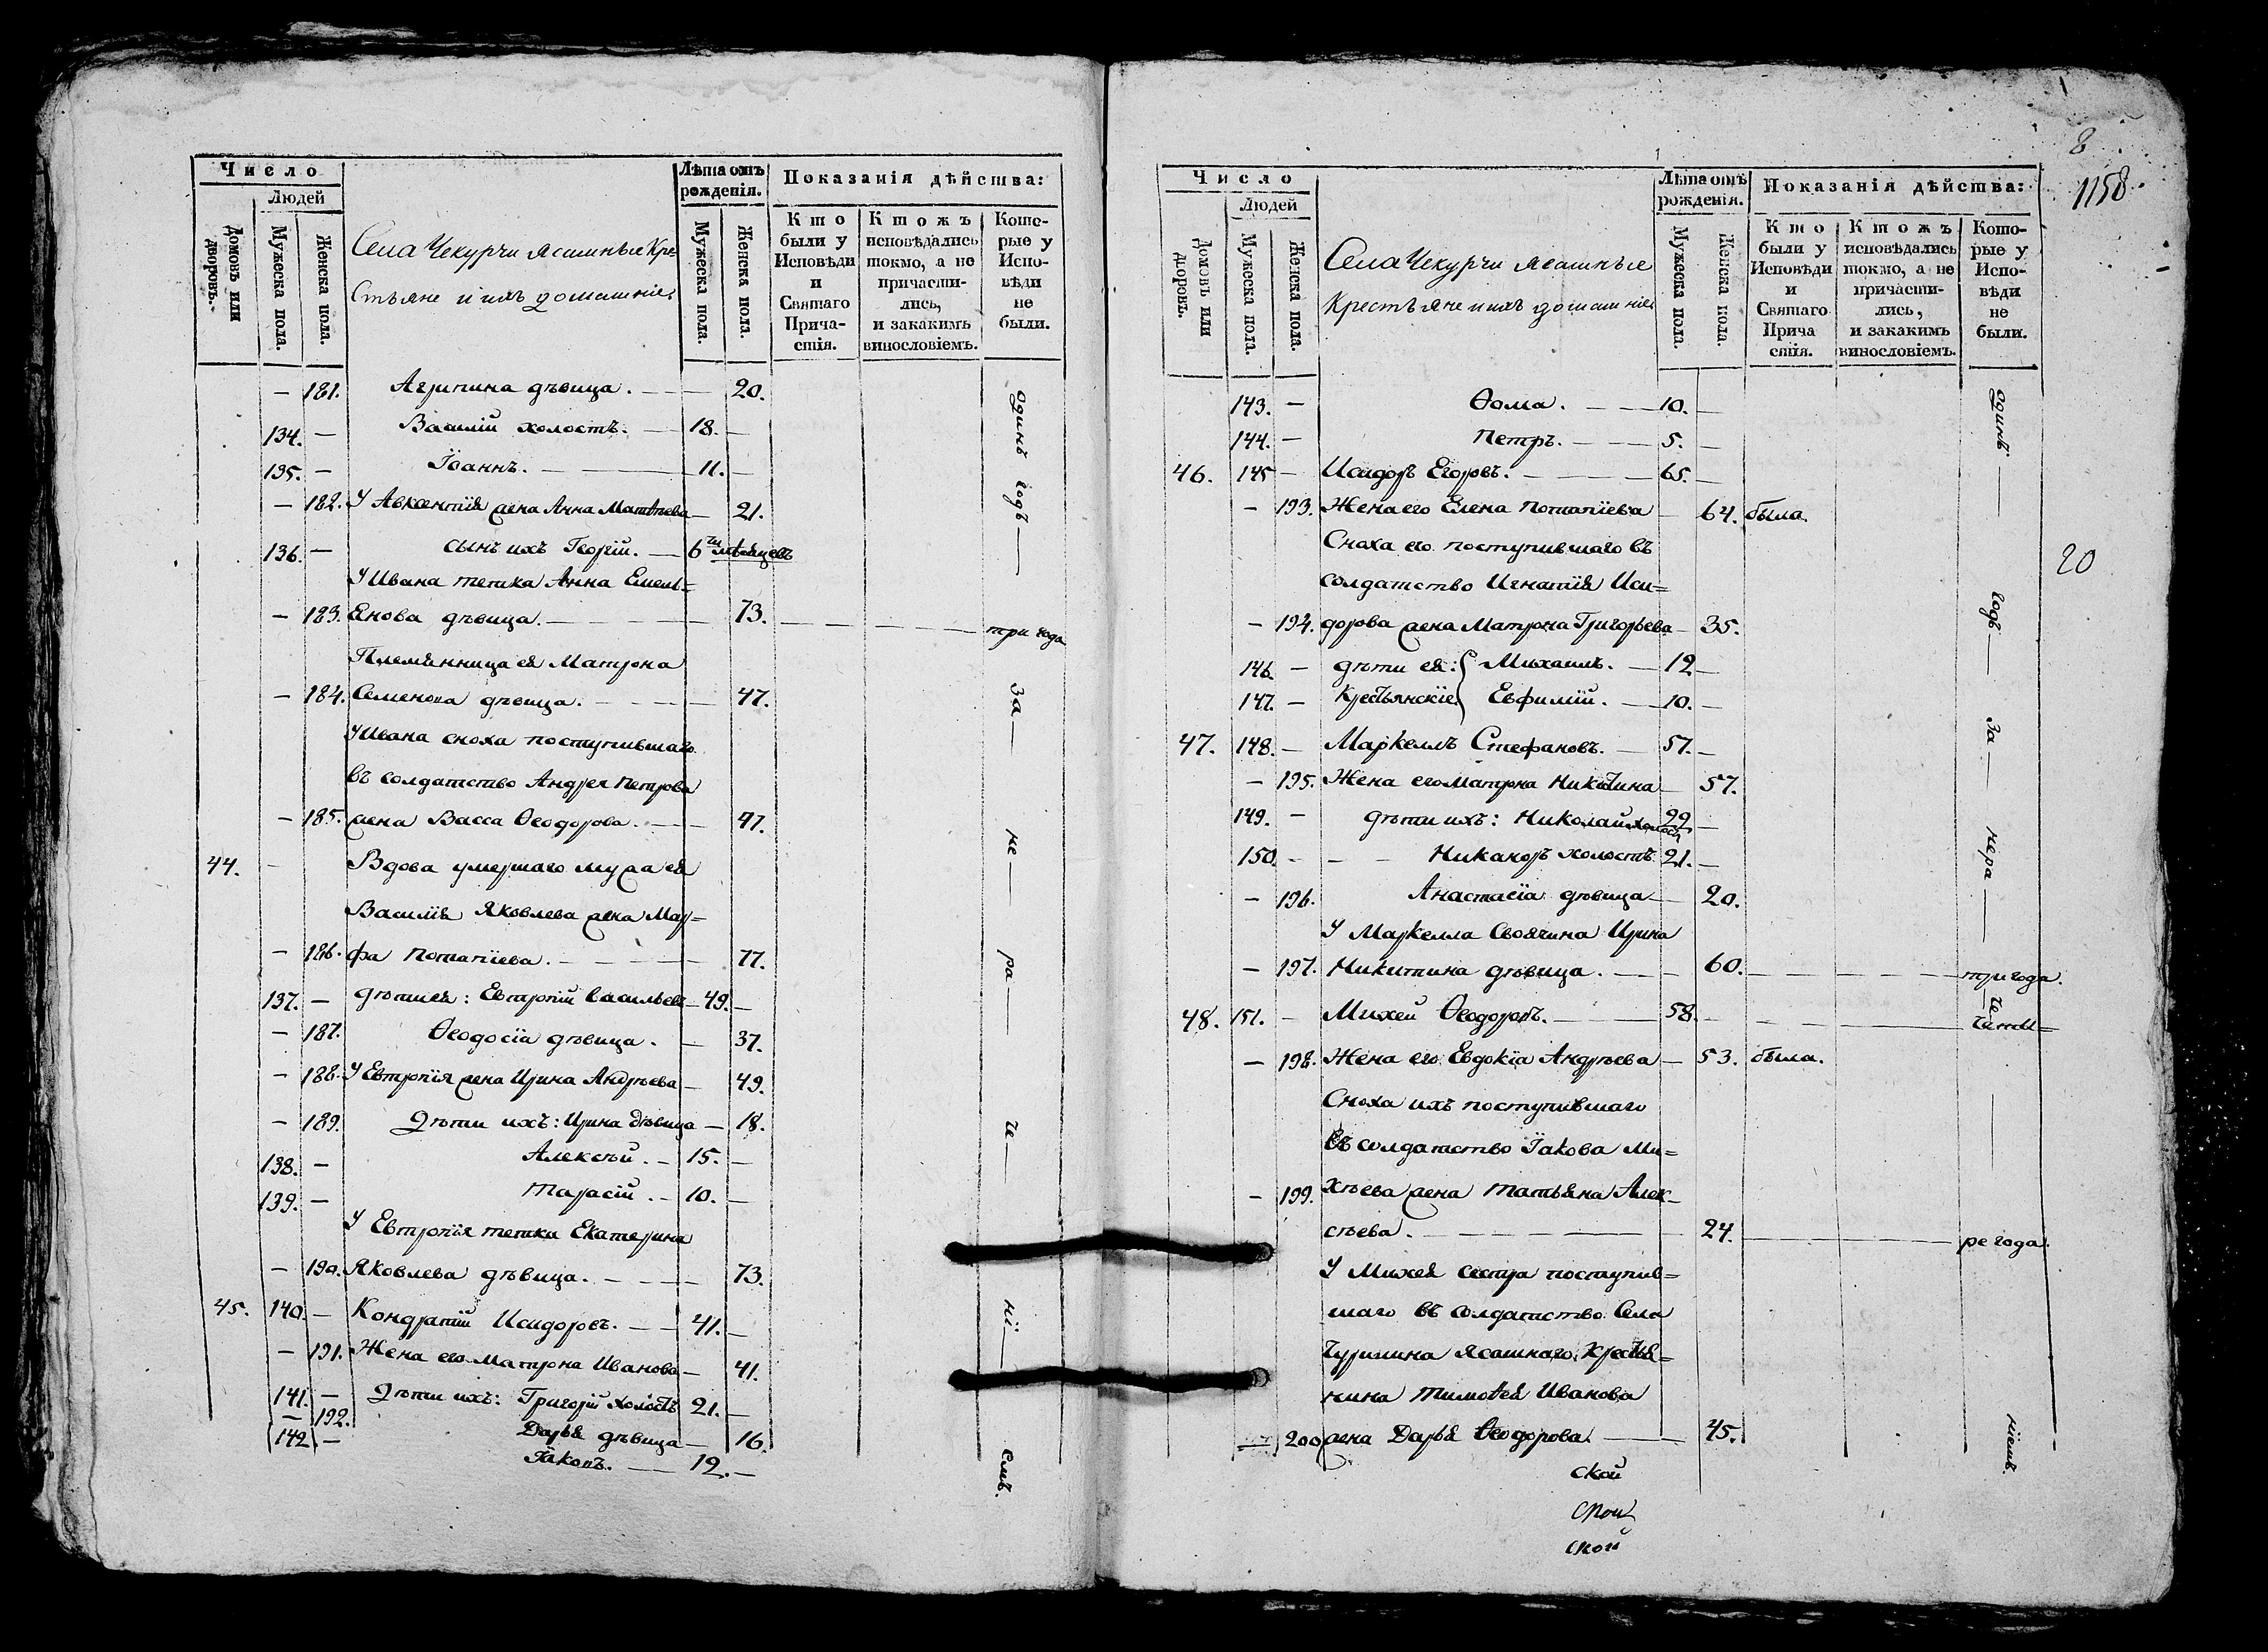 Число
Людей
Домовъ или дворовъ.
Мужеска пола.
Женска пола.
Села Чекурчи Ясашные Кре=
стьяне и ихъ домашние
Лѣта отъ рожденія.
Мужеска пола.
Женска пола.
Показанія дѣйства:
Кто были у Исповѣди и Святаго Причастія.
Ктожъ исповѣдались токмо, а не причастились, и закакимъ винословіемъ.
Которые у Исповѣди не были.
— 181. Агрипина дѣвица. — — 20.
134. — Василій холостъ. — 18. —
135. — Іоаннъ. — 11. —
— 182. У Авксентія жена Анна Матѳѣева — 21.
136. — сынъ ихъ Георгій. — 6ти мѣсяцевъ
У Ивана тетка Анна Емель=
— 183. Янова дѣвица. — 73. — три года
Племянница ея Матрона
— 184. Семенова дѣвица. — 47.
У Ивана сноха поступившаго
въ солдатство Андрея Петрова
— 185. жена Васса Ѳеодорова. — 47.
44. — Вдова умершаго мужа ея
Василія Яковлева жена Мар=
— 186. фа Потапіева. — 77.
137. — дѣти ея: Евтропій Васильевъ — 49. —
— 187. Ѳеодосіа дѣвица. — 37.
— 188. У Евтропія жена Ирина Андрѣева — 49.
— 189. Дѣти ихъ: Ирина дѣвица — 18.
138. — Алексѣй. — 15. —
139. — Тарасій. — 10. —
У Евтропія тетка Екатерина
— 190. Яковлева дѣвица. — 73.
45. 140. — Кондратій Исидоровъ. — 41. —
— 191. Жена его Матрона Иванова — 41.
141. — Дѣти ихъ: Григорій холостъ 21. —
— 192. Дарья дѣвица — 16.
142. — Іаковъ. — 12. —
одинъ годъ — за — не — ра — че — ні — емъ.
8
1158
20
Число
Людей
Домовъ или дворовъ.
Мужеска пола.
Женска пола.
Села Чекурчи Ясашные
Крестьяне и ихъ домашние
Лѣта отъ рожденія.
Мужеска пола.
Женска пола.
Показанія дѣйства:
Кто были у Исповѣди и Святаго Причастія.
Ктожъ исповѣдались токмо, а не причастились, и закакимъ винословіемъ.
Которые у Исповѣди не были.
143. — Ѳома. — 10. —
144. — Петръ. — 5. —
46. 145 — Исидоръ Егоровъ. — 65. —
— 193. Жена его Елена Потапіева — 64. была.
Сноха его поступившаго въ
солдатство Игнатія Иси=
— 194. дорова жена Матрона Григорьева — 35.
146. — дѣти ея: Михаилъ. — 12 —
147. — Крестьянскіе Евфимій. — 10. —
47. 148. — Маркеллъ Стефановъ. — 57. —
— 195. Жена его Матрона Никитина — 57.
149. — дѣти ихъ: Николай холостъ 22 —
150. — Никаноръ холостъ 21. —
— 196. Анастасіа дѣвица — 20.
У Маркелла Своячина Ирина
— 197. Никитина дѣвица. — 60. — три года.
48. 151. — Михей Ѳеодоровъ. — 58. — четы=
— 198. Жена его Евдокіа Андрѣева — 53. была.
Сноха ихъ поступившаго
въ солдатство Іакова Ми=
— 199. хѣева жена Татьяна Алек=
сѣева. — 24. — ре года.
У Михея сестра поступив=
шаго въ солдатство Села
Чурилина ясашнаго Крестья=
нина Тимоѳея Иванова
— 200 жена Дарья Ѳеодорова. — 45.
одинъ — годъ — за — нера — че — ніемъ.
ской
ской
ской